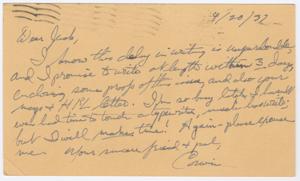 9/20/77
Dear Jack,
I know this delay in writing is unpardonable,
and I promise to write at length within 3 days,
enclosing some props of this issue, and also your
 + HPL letter. I'm so busy lately I haven't
had time to touch a typewriter,
but I will make time! Again - please excuse
me. Your sincere friend & pal,
Corwin